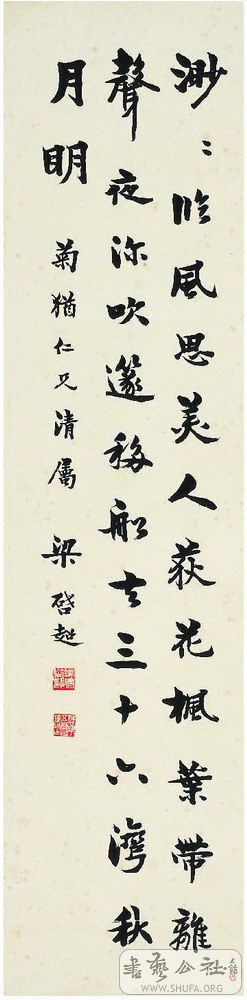 渺〻臨風思美人荻花楓葉帶離
聲夜深吹篴移船去三十六灣秋
月明
菊猶仁兄清屬 梁啓超
書藝公社
WWW.SHUFA.ORG